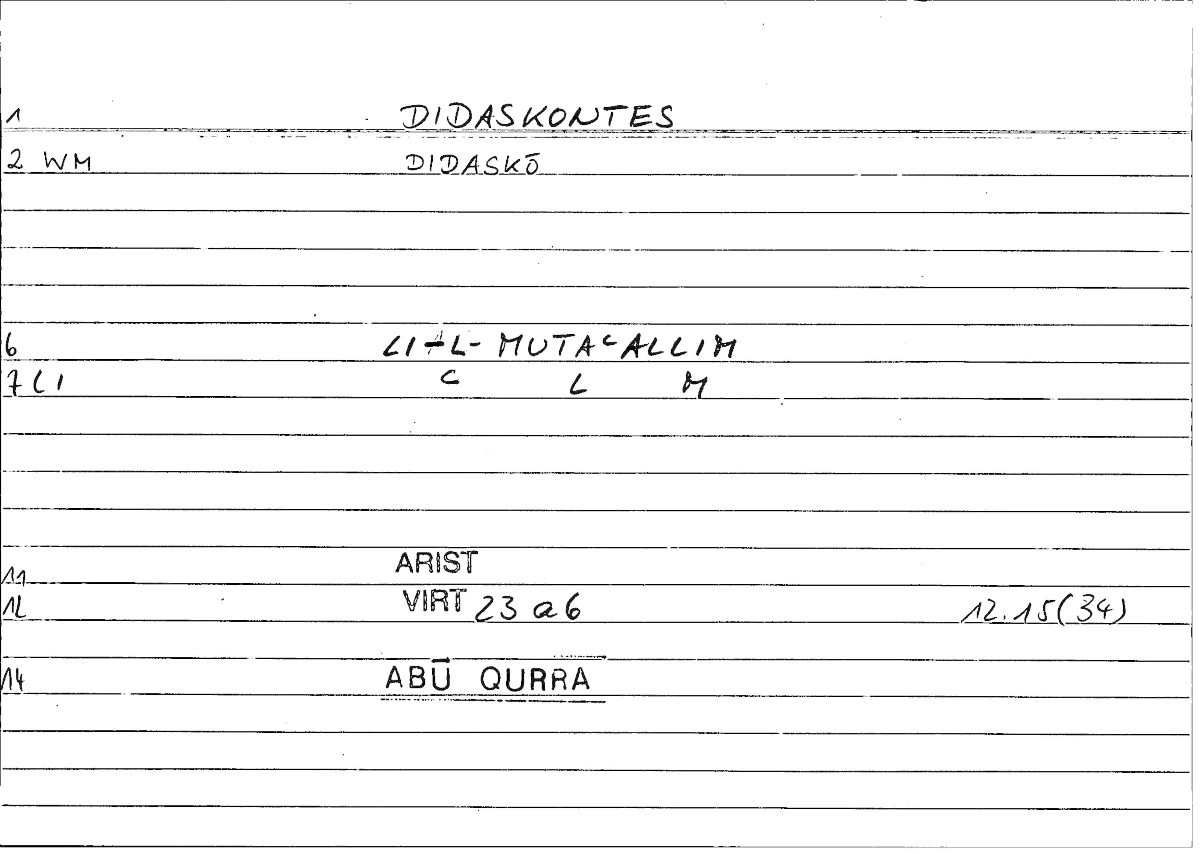 1 DIDASKONTES
2 WM DIDASKŌ
6 LI-L-MUTAʿALLIM
7 LI ʿ L M
11 ARIST
12 VIRT 23 a 6 12.15(34)
14 ABŪ QURRA